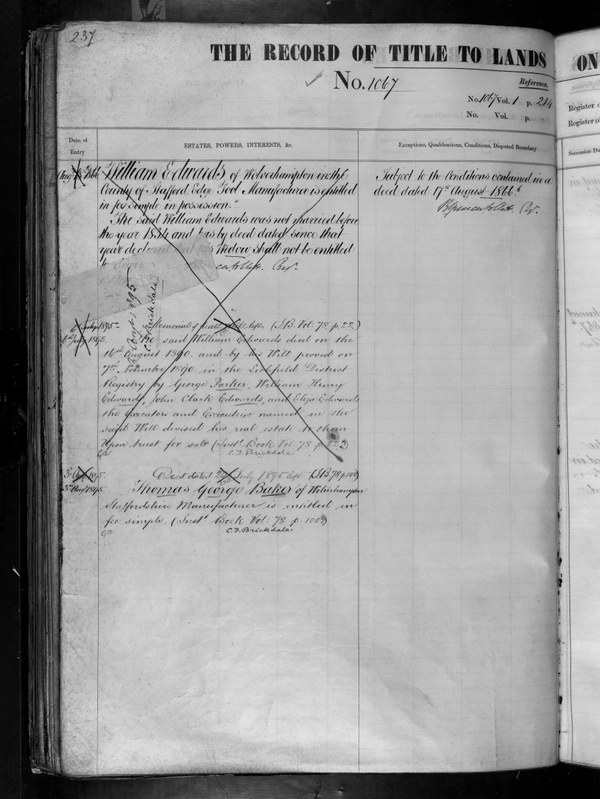 237
THE RECORD OF TITLE TO LANDS
No. 1067
Reference.
No. 1067 Vol. 1 p. 214
No. Vol. p.
Date of
Entry
ESTATES, POWERS, INTERESTS, &c.
Exceptions, Qualifications, Conditions, Disputed Boundary
William Edwards of Wolverhampton in the
County of Stafford Edge Tool Manufacturer is entitled
in fee simple in possession.
The said William Edwards was not married before
the year 1834 and has by deed dated since that
year declared his Widow shall not be entitled
to
Subject to the Conditions contained in a
deed dated 17th August 1866
1895
C.F. Brickdale
Memorial of (S.B. Vol. 78 p. 22.)
1895 The said William Edwards died on the
16th August 1890 and by his Will proved on
7th November 1890 in the Lichfield District
Registry by George Parker, William Henry
Edwards, John Clark Edwards, and Eliza Edwards
the Executors and Executrix named in the
said Will devised his real estate to them
Upon trust for sale (Inst. Book Vol. 78 p. 22)
C.F. Brickdale
1895 Deed dated July 1895 (S.B. 78 p. 100)
3rd Augt 1895 Thomas George Baker of Wolverhampton
Staffordshire Manufacturer is entitled in
fee simple. (Inst. Book Vol. 78 p. 100)
C.F. Brickdale
ON
Register of
Register of
Succession Du